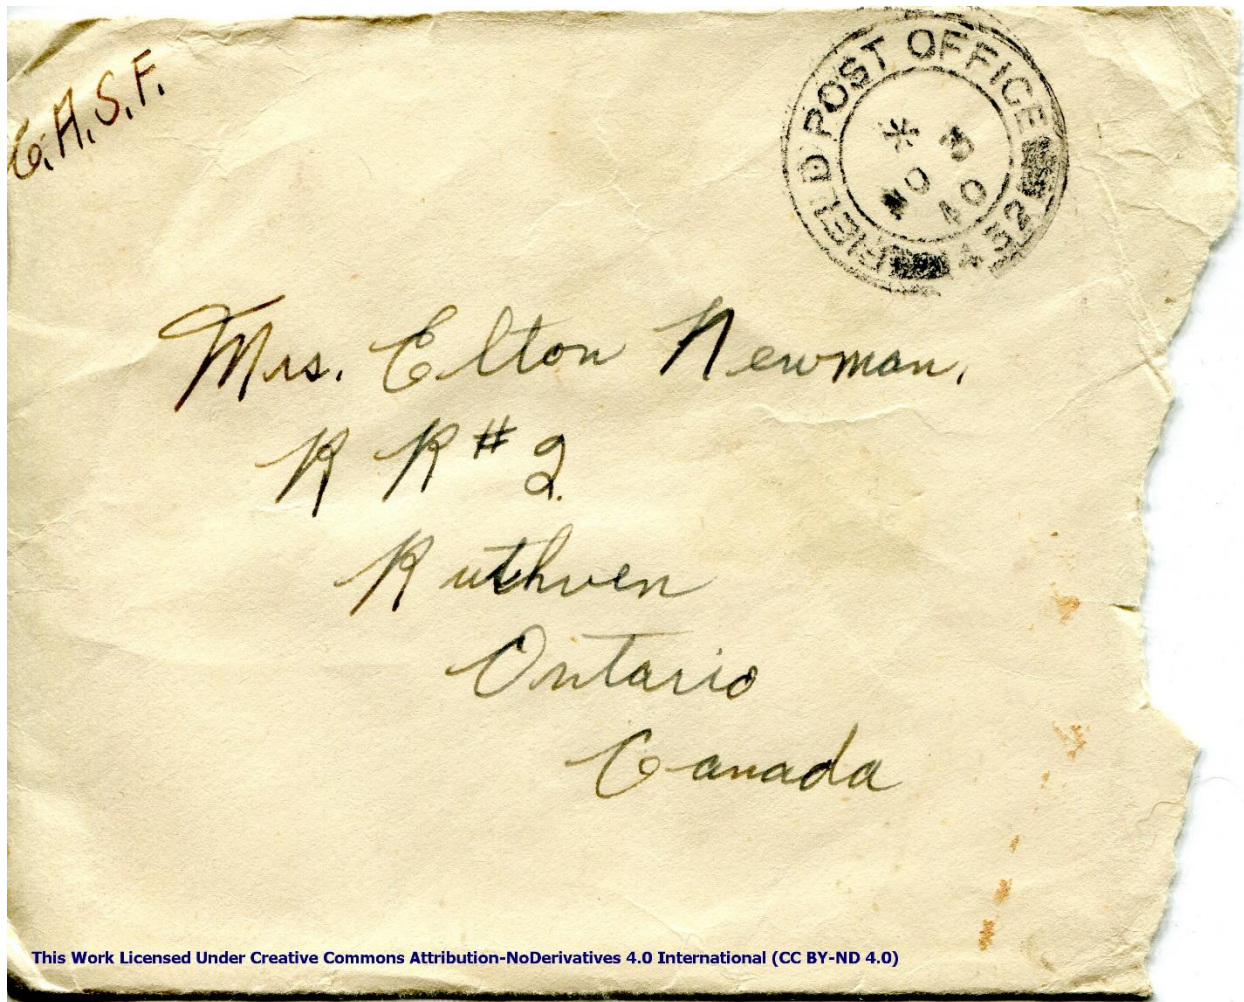 C.A.S.F.
FIELD POST OFFICE
452
40
Mrs. Elton Newman,
R R # 2.
Ruthven
Ontario
Canada
This Work Licensed Under Creative Commons Attribution-NoDerivatives 4.0 International (CC BY-ND 4.0)